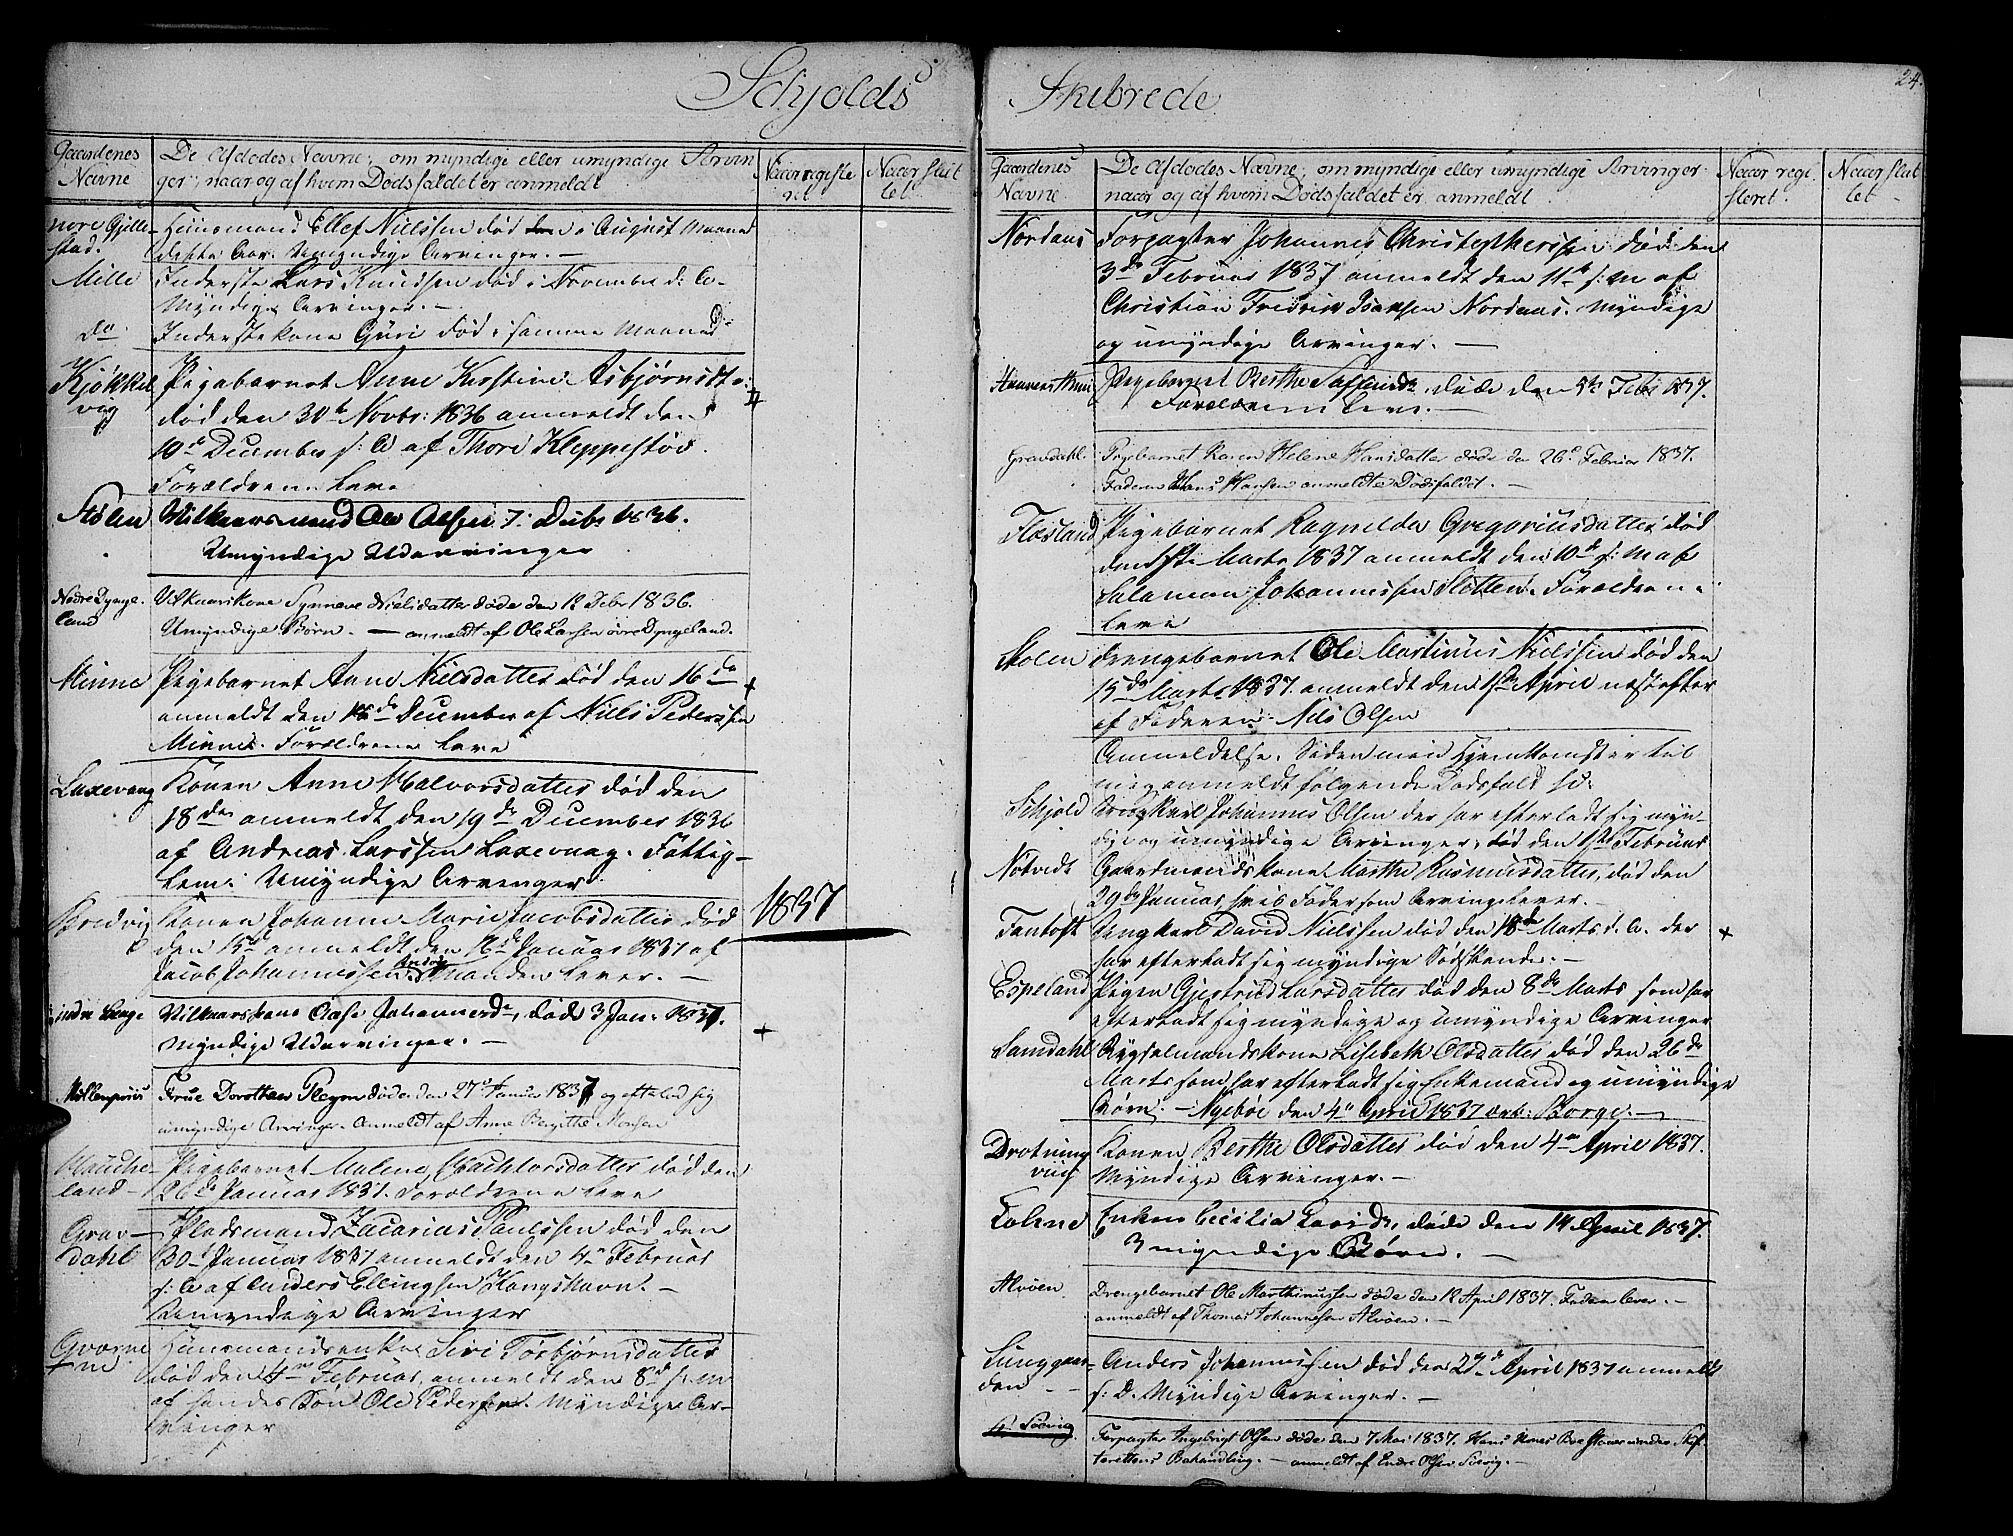 Schjolds Skibrede
24.
Gaardenes Navne
De Afdødes Navne, om myndige eller umyndige Arvin
ger, naar og af hvem Dødsfaldet er anmeldt
Naar registe
ret
Naar slut
tet
nore Gjelle
stad.
Huusmand Ellef Nielssen død i August Maaned
dette Aar. Umyndige Arvinger. —
Milde
Inderste Lars Knudsen død i November d: A.
Myndige Arvinger. —
do
Inderstekone Guri død i samme Maaned
Kjøkkel
vig
Pigebarnet Anne Kirstine Asbjørnsdtr
død den 30te Novbr: 1836 anmeldt den
10de December s: A af Thore Kleppestøe.
Forældrene leve
Stølen
Vilkaarsmand Ole Olsen 7: Debr 1836.
Umyndige Udarvinger
Nedre Dynge-
land
Vilkaarskone Synneve Nielsdatter døde den 12 Debr 1836.
Umyndige Børn. — anmeldt af Ole Larsen øvre Dyngeland.
Minne
Pigebarnet Anne Nielsdatter død den 16de
anmeldt den 18de December af Niels Pederssen
Minne. Forældrene leve
Laxevaag
Konen Anne Halvorsdatter død den
18de anmeldt den 19de December 1836
af Andreas Larssen Laxevaag. Fattig-
lem. Umyndige Arvinger
1837
Bredvig
Konen Johanne Marie Jacobsdatter død
den 15de anmeldt den 16de Januar 1837 af
Jacob Johannessen Manden lever. —
indre Lenge
Vilkaarskone Aase Johannesdr, døde 3 Jan: 1837.
Myndige Udarvinger. —
Frue Dorothea Pleym døde den 27de Januar 1837 og efterlod sig
umyndige Arvinger. Anmeldt af Anne Birgitthe Monsen
land —
Pigebarnet Malene død den
26de Januar 1837. Forældrene leve
Grav—
dahl
Pladsmand Zacarias Paulssen død den
30te Januar 1837 anmeldt den 4de Februar
s: A af Anders Ellingsen Kongshavn. —
Umyndige Arvinger
Qværne
Huusmandsenke Siri Torbjørnsdatter
død den 4de Februar, anmeldt den 8de s: m
af hendes Søn Ole Pedersen. Myndige Ar-
vinger
Gaardenes
Navne
De Afdødes Navne, om myndige eller umyndige Arvinger
naar og af hvem Dødsfaldet er anmeldt
Naar regi
steret.
Naar slut
tet
Nordaas
Forpagter Johannes Christopherssen død den
3de Februar 1837 anmeldt den 11te s: m af
Christian Fredrik Nordaas. Myndige
og umyndige Arvinger. —
Pigebarnet Berthe døde den 5te Febr 1837.
Forældrene leve. —
Gravdahl.
Pigebarnet Karen Helene Hansdatter døde den 26de Februar 1837.
Faderen Hans Hansen anmeldte Dødsfaldet. —
Fløsland
Pigebarnet Ragnilda Gregoriusdatter død
den Marts 1837 anmeldt den 10de s: m af
Salamon Johannessen Sletten. Forældrene
leve
Stølen
Drengebarnet Ole Martinus Nielssen død den
15de Marts 1837. anmeldt den 1ste April næstefter
af Faderen Nils Olsen
Anmeldelse. Siden min Hjemkomst er til
mig anmeldt følgende Dødsfald sc:
Schjold
Ungkarl Johannes Olsen der har efterladt sig myn-
dige og umyndige Arvinger, død den 1ste Februar
Natvedt
Gaardmandskone Marthe Rasmusdatter, død den
29de Januar, hvis Fader som Arving lever. —
Fantoft
Ungkarl David Nielssen død den 18de Marts d. A. der
har efterladt sig myndige Sødskende. —
Espeland
Pigen Gjertrud Larsdatter død den 8de Marts som har
efterladt sig myndige og umyndige Arvinger
Samdahl
Rydselmandskone Lisbeth Olsdatter død den 26de
Marts som har efterladt sig Enkemand og umyndige
Børn. — Nyebøe den 4de April 1837 Borge. —
Drotning
viig
Konen Berthe Olsdatter død den 4de April 1837.
Myndige Arvinger. —
Enken Cecilia Larsdr, døde den 14 April 1837.
3 myndige Børn. —
Alvøen
Drengebarnet Ole Marthinussen døde den 12 April 1837. Faderen lever. —
anmeldt af Thomas Johannesen Alvøen. —
Lunggaar-
den — —
Anders Johannessen død den 27de April 1837 anmeldt
s: D. Myndige Arvinger. —
Søvig
Forpagter Ingebrigt Olsen døde den 7 Mai 1837. Hans Kones Boe staaer under Skif-
terettens Behandling. — anmeldt af Endre Olsen Søvig. —